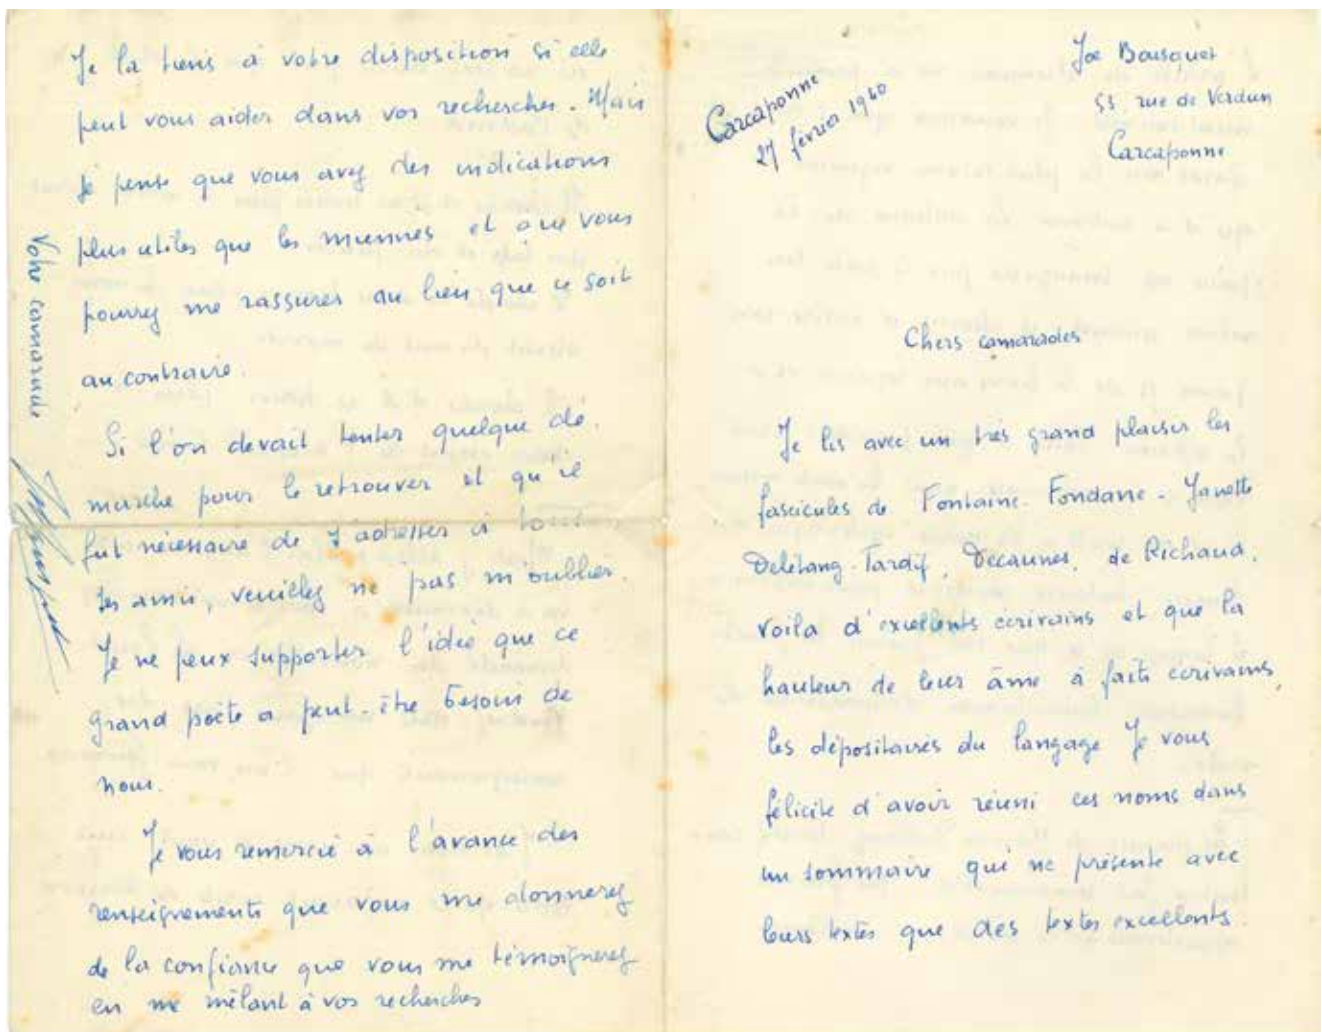 Je la tiens à votre disposition si elle
peut vous aider dans vos recherches. Mais
je pense que vous avez des indications
plus utiles que les miennes et que vous
pourrez me rassurer au lieu que ce soit
au contraire.
Si l'on devait tenter quelque dé-
marche pour le retrouver et qu'il
fut nécessaire de s'adresser à tous
ses amis, veuillez ne pas m'oublier.
Je ne peux supporter l'idée que ce
grand poète a peut-être besoin de
nous.
Je vous remercie à l'avance des
renseignements que vous me donnerez
de la confiance que vous me témoignerez
en me mêlant à vos recherches
Votre camarade
Carcassonne
27 février 1940
Joe Bousquet
53 rue de Verdun
Carcassonne
Chers camarades
Je lis avec un très grand plaisir les
fascicules de Fontaine. Fondane - Yanette
Delétang-Tardif, Decaunes, de Richaud,
voila d'excellents écrivains et que la
hauteur de leur âme a faits écrivains,
les dépositaires du langage Je vous
félicite d'avoir réuni ces noms dans
un sommaire qui ne présente avec
leurs textes que des textes excellents.